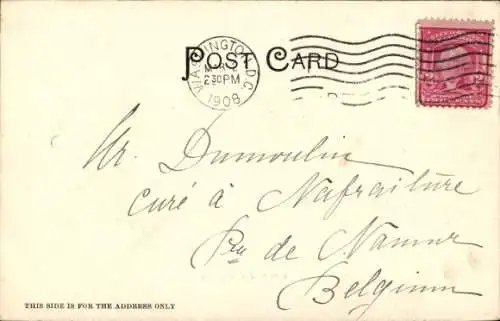 POST CARD
WASHINGTON, D.C.
MAR
230 PM
1908
Mr. Dumoulin
Curé à Nafraiture
Pce de Namur
Belgium
THIS SIDE IS FOR THE ADDRESS ONLY